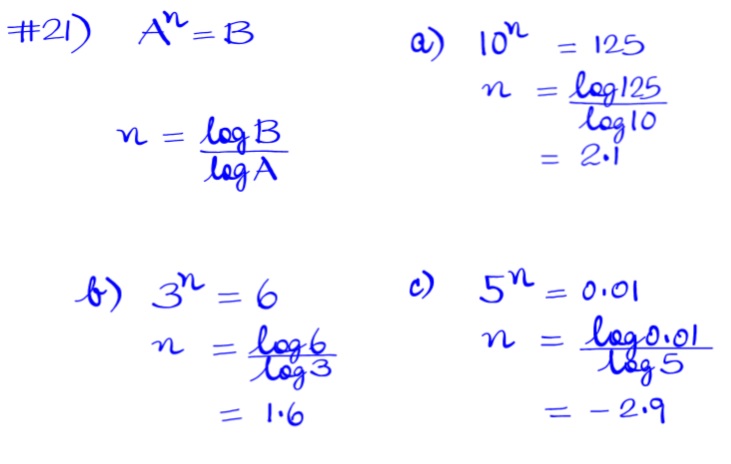 #21) Aⁿ = B
n = log B / log A
a) 10ⁿ = 125
n = log125 / log10
= 2.1
b) 3ⁿ = 6
n = log6 / log3
= 1.6
c) 5ⁿ = 0.01
n = log0.01 / log5
= -2.9